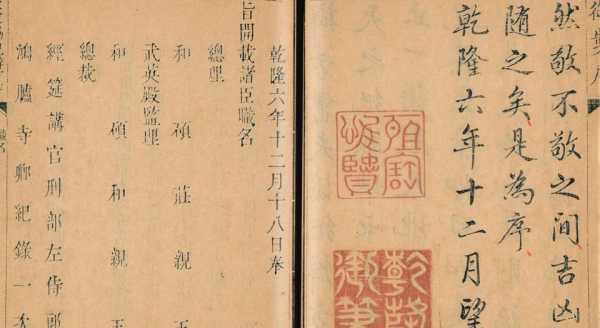 然敬不敬之间吉凶
随之矣是為序
乾隆六年十二月望
惟賢
乾隆
御筆
乾隆六年十二月十八日奉
旨開載諸臣職名
總理
和碩莊親王
武英殿監理
和碩和親王
總裁
經筵講官刑部左侍郎
鴻臚寺卿紀錄一次